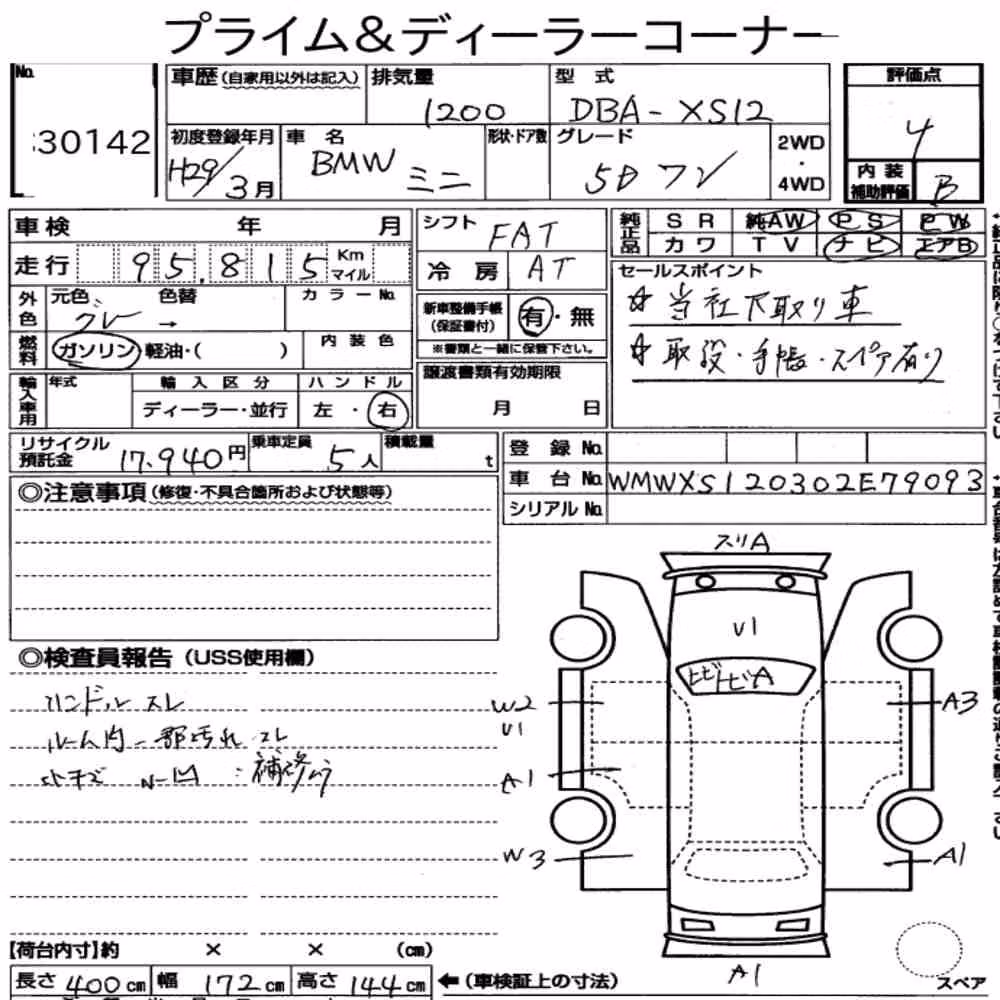 プライム＆ディーラーコーナー
No. 30142
車歴(自家用以外は記入) 排気量 1200 型式 DBA-XS12
評価点 4
初度登録年月 H29/3月 車名 BMW ミニ 形状・ドア数 グレード 5D ワン 2WD・4WD
内装補助評価 B
車検 年 月
走行 95,815 Km マイル
シフト FAT
冷房 AT
純正品 SR 純AW PS PW
カワ TV ナビ エアB
外色 元色 グレー 色替 → カラーNo.
燃料 ガソリン 軽油・( ) 内装色
新車整備手帳(保証書付) 有・無
※書類と一緒に保管下さい。
セールスポイント
☆当社下取り車
☆取説・手帳・スペア有り
輸入車用 年式 輸入区分 ディーラー・並行 ハンドル 左・右
譲渡書類有効期限 月 日
リサイクル預託金 17,940円 乗車定員 5人 積載量 t
登録No.
車台No. WMWXS120302E79093
シリアルNo.
◎注意事項(修復・不具合箇所および状態等)
◎検査員報告(USS使用欄)
ハンドル スレ
ルーム内一部汚れ スレ
補修
スリA
U1
ヒビトビA
W2
U1
A3
A1
W3
A1
A1
スペア
【荷台内寸】約 × × (cm)
長さ 400cm 幅 172cm 高さ 144cm ←(車検証上の寸法)